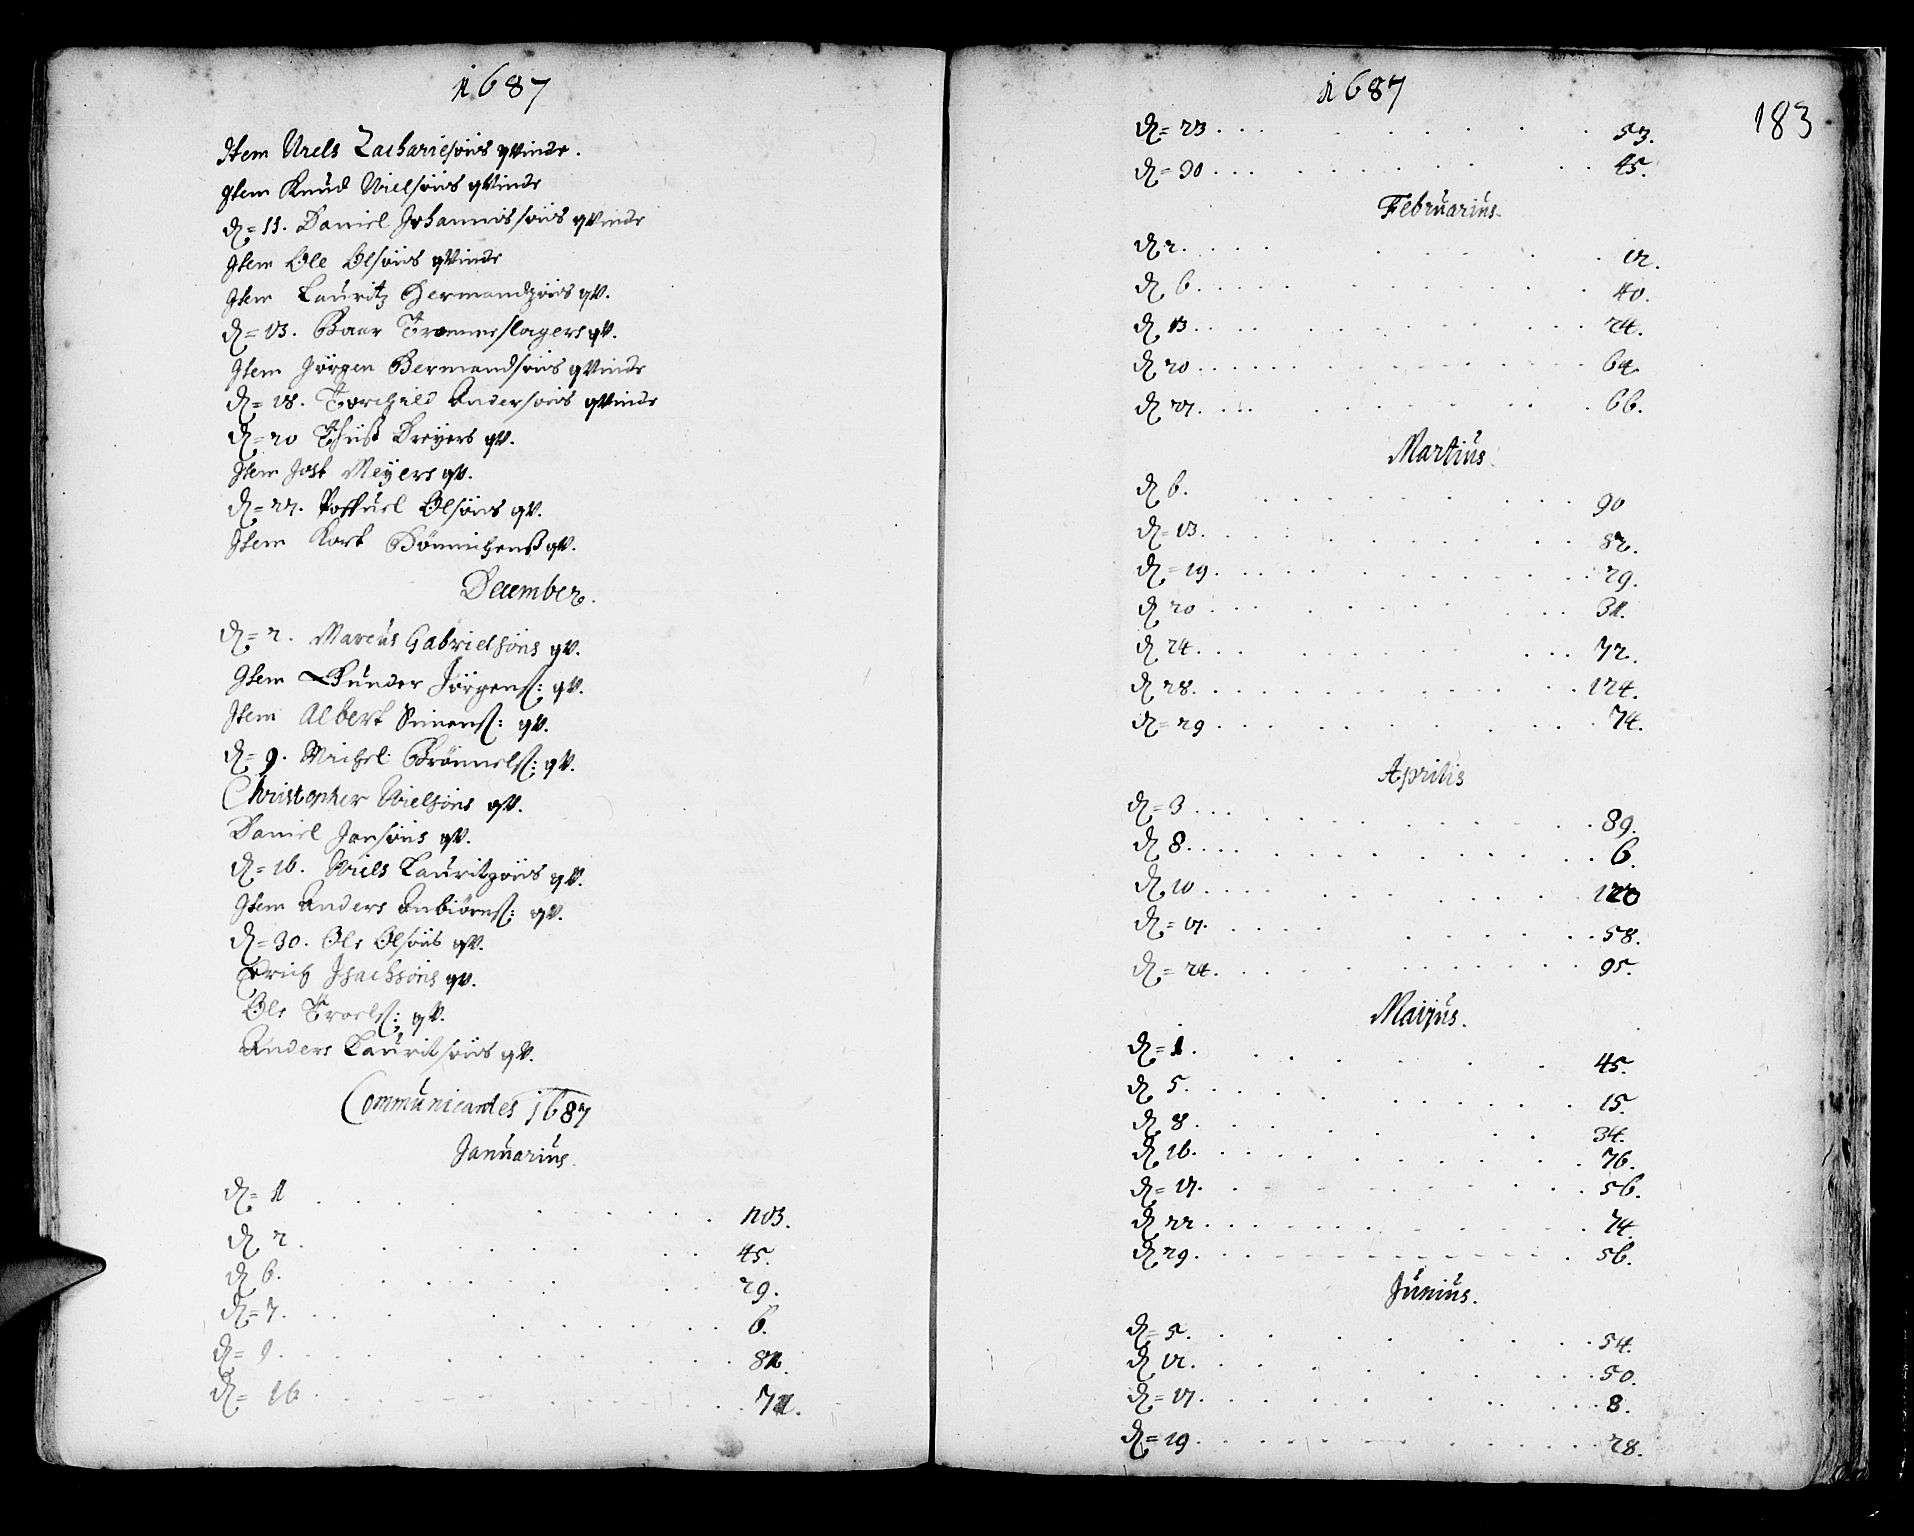 1687
Item Niels Zachariesøns qvinde.
Item Knud Nielsøns qvinde
D. 11. Daniel Johannissøns qvinde
Item Ole Olsøns qvinde
Item Lauritz Hermandzøns qv.
D. 13. Baar Trommeslagers qv.
Item Jørgen Bermandsøns qvinde
D. 18. Torchild Andersøns qvinde
D. 20 Thiis Dreyers qv.
Item Jost Meyers qv.
D. 27. Olsøns qv.
Item Kort Dønnichens qv.
December.
D. 2. Marcus Gabrielsøns qv.
Item Gunder Jørgens: qv.
Item Albert Simens: qv.
D. 9. Michel qv.
Christopher Nielsøns qv.
Daniel Jansøns qv.
D. 16. Niels Lauritzøns qv.
Item Anders Anbiørns: qv.
D. 30. Ole Olsøns qv.
Erich Isachsøns qv.
Ole Troels: qv.
Anders Lauritsøns qv.
Communicantes 1687
Januarius.
D. 1 . . . 103.
D. 2. . . . 45.
D. 6. . . . 29.
D. 7. . . . 6.
D. 9. . . . 82.
D. 16. . . . 71.
1687
183
D. 23. . . . 53.
D. 30. . . . 45.
Februarius.
D. 2. . . . 12.
D. 6. . . . 40.
D. 13. . . . 24.
D. 20. . . . 64.
D. 27. . . . 66.
Martius.
D. 6. . . . 90
D. 13. . . . 82.
D. 19. . . . 29.
D. 20. . . . 31.
D. 24. . . . 72.
D. 28. . . . 124.
D. 29. . . . 74.
Aprilis
D. 3. . . . 89.
D. 8. . . . 6.
D. 10. . . . 120
D. 17. . . . 58.
D. 24. . . . 95.
Maijus.
D. 1. . . . 45.
D. 5. . . . 15.
D. 8. . . . 34.
D. 16. . . . 76.
D. 17. . . . 56.
D. 22. . . . 74.
D. 29. . . . 56.
Junius.
D. 5. . . . 54.
D. 12. . . . 50.
D. 17. . . . 8.
D. 19. . . . 28.